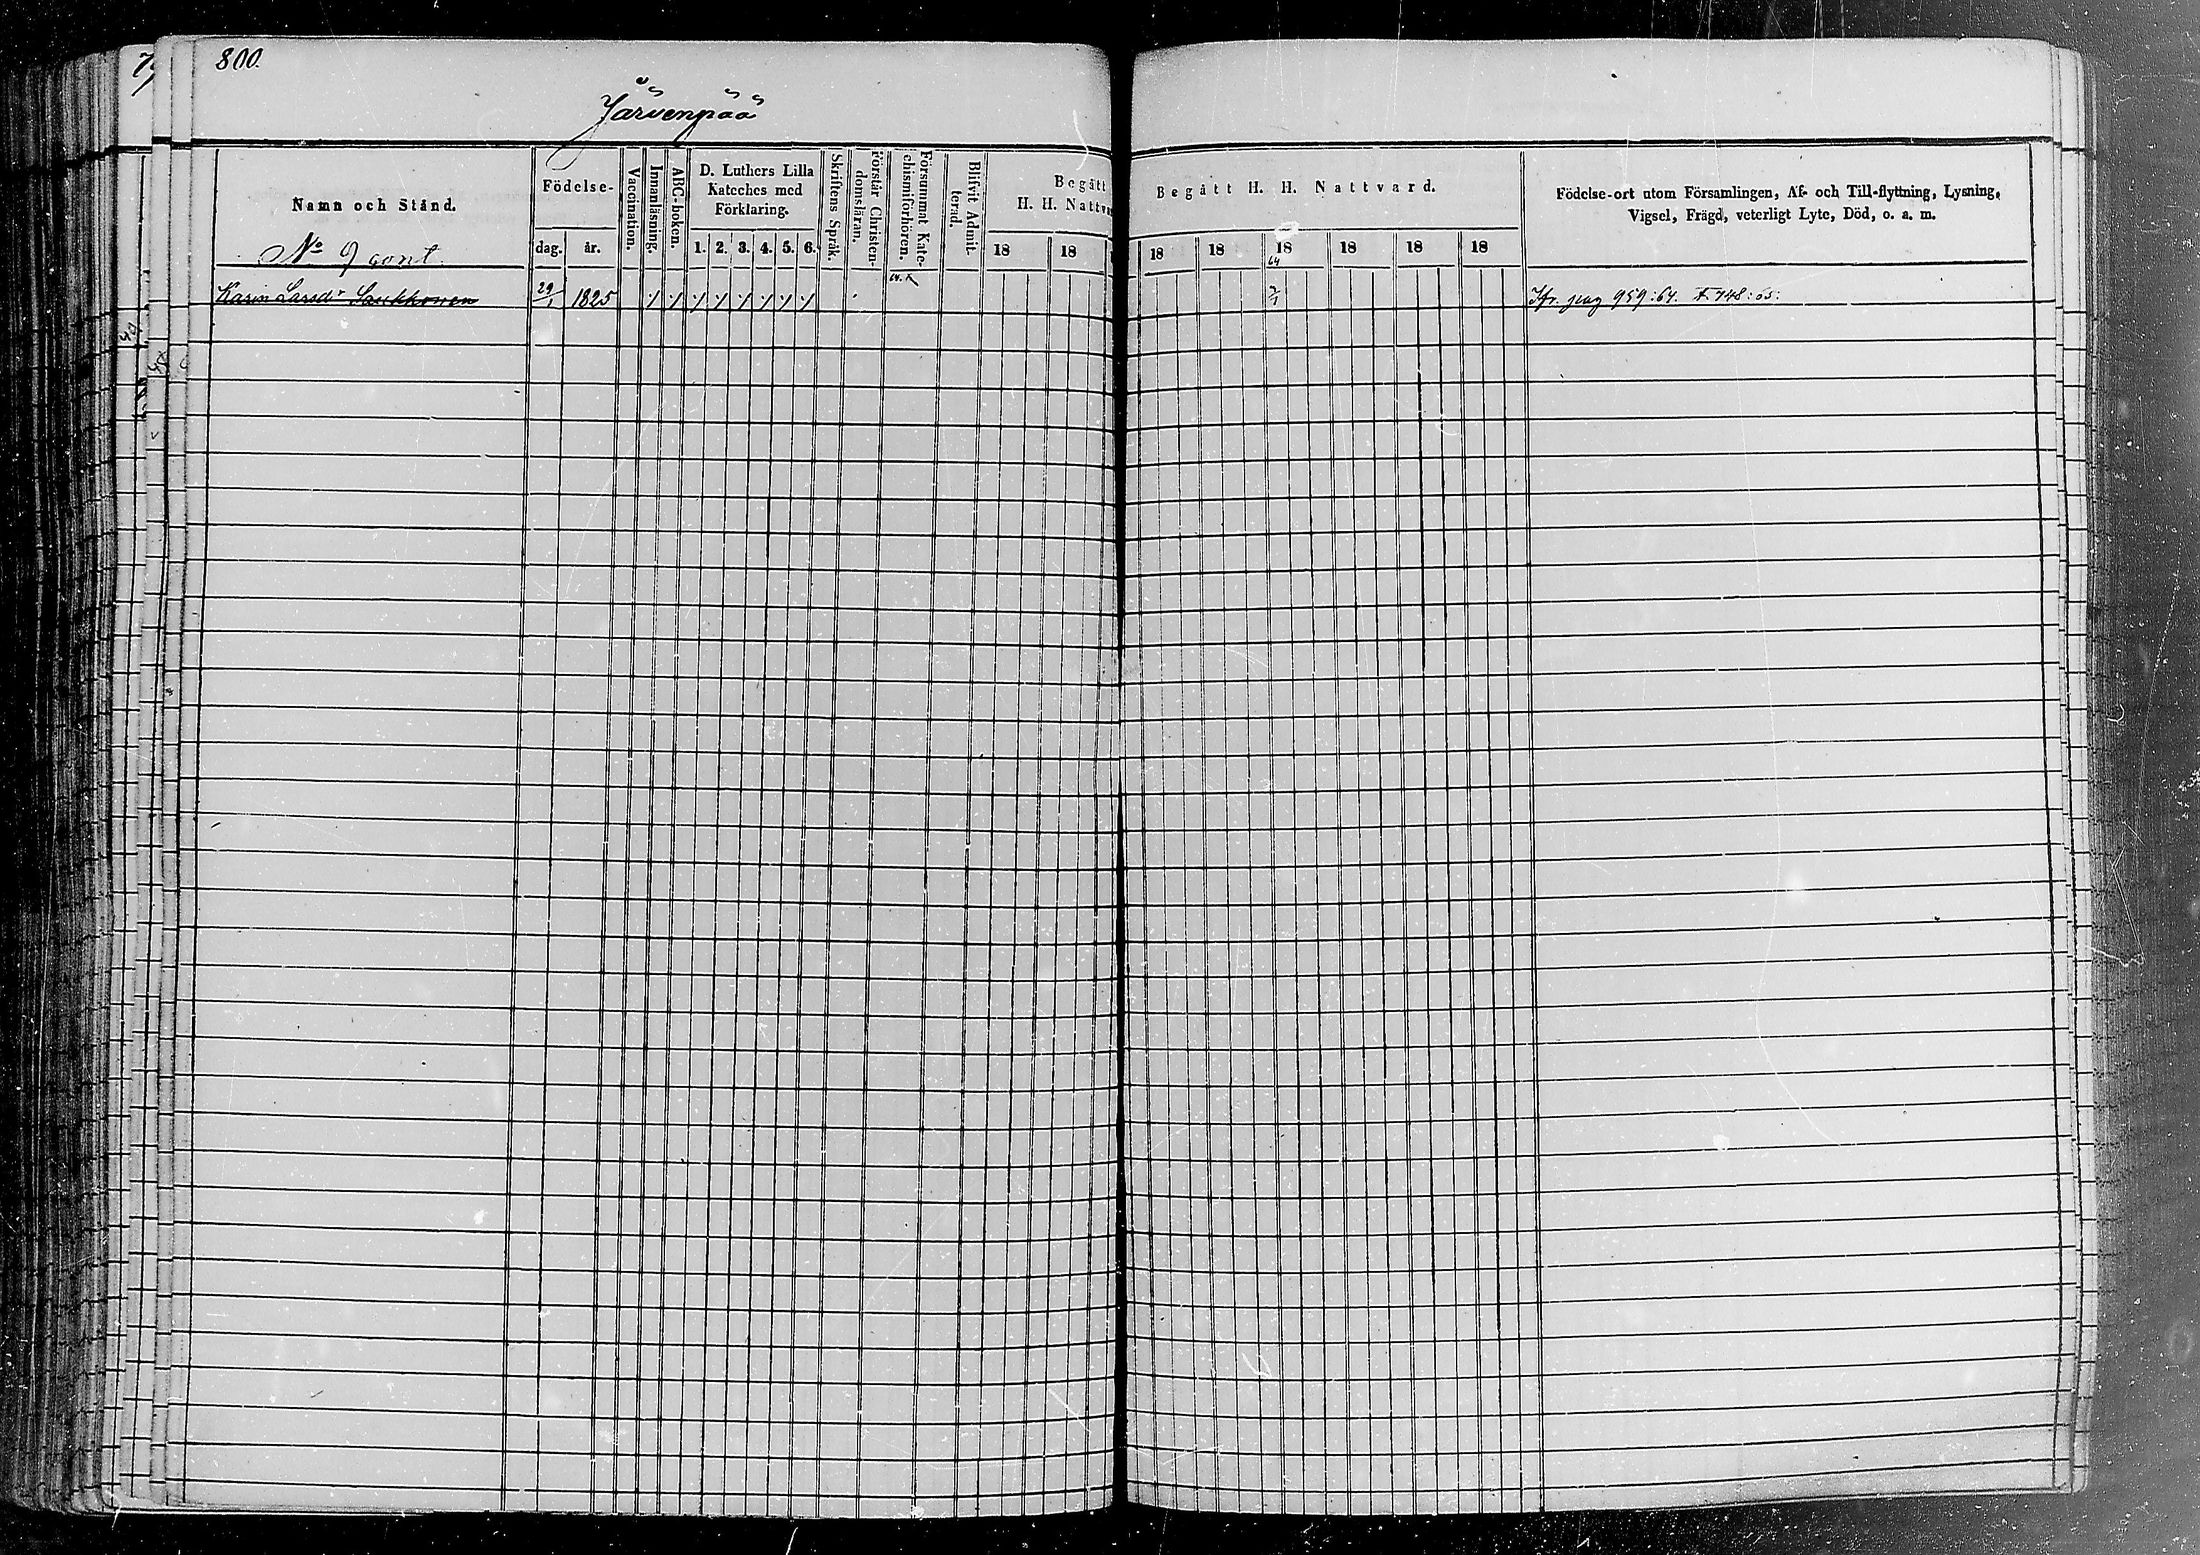 800.
Järvenpää
Namn och Stånd.
Födelse-
dag.
år.
Vaccination.
Innanläsning.
ABC-boken.
D. Luthers Lilla
Kateches med
Förklaring.
1. 2. 3. 4. 5. 6.
Skriftens Språk.
Förstår Christen-
domsläran.
Försummat Kate-
chismiförhören.
Blifvit Admit-
terad.
Begått
H. H. Nattv
18 18
Begått H. H. Nattvard.
18 18 18 18 18 18
64
Födelse-ort utom Församlingen, Af- och Till-flyttning, Lysning,
Vigsel, Frägd, veterligt Lyte, Död, o. a. m.
No 9 cont.
Karin Larsdr Saukkonen 29/1 1825 7/1 pag 959:64. t. 748:65: